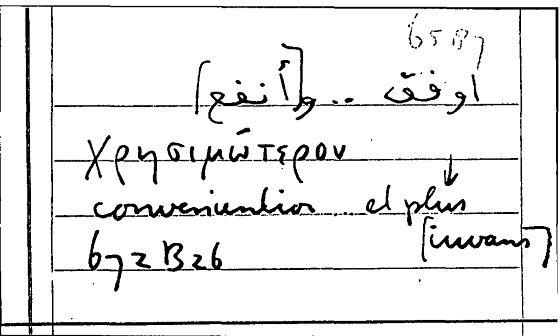 65 B7
اوفق .. و[أنفع]
χρησιμώτερον
convenientior .. et plus
[iuvans]
672 B26